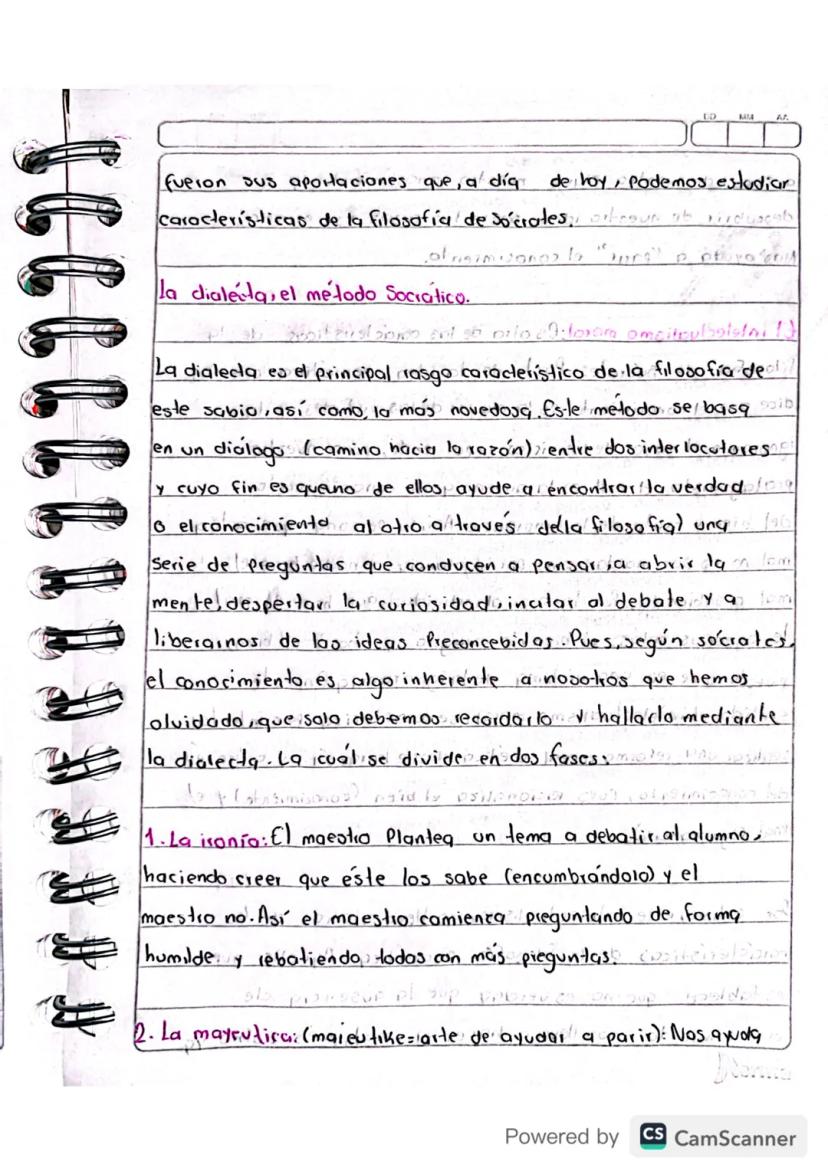 DD MM AA
fueron sus aportaciones que, a día de hoy, podemos estudiar
características de la filosofía de Sócrates.
La dialécta, el método Socrático.
La dialecta es el principal rasgo característico de la filosofía de
este sabio, así como, la más novedosa. Este método se basa
en un diálogo (camino hacia la razón) entre dos interlocutores
y cuyo fin es que uno de ellos ayude a encontrar la verdad
o el conocimiento al otro a través de (la filosofía) una
serie de preguntas que conducen a pensar, a abrir la
mente, despertar la curiosidad, incitar al debate y a
liberarnos de las ideas Preconcebidas. Pues, según sócrates,
el conocimiento es algo inherente a nosotros que hemos
olvidado, que solo debemos recordarlo y hallarlo mediante
la dialecta. La cuál se divide en dos fases:
1. La ironía: El maestro Plantea un tema a debatir al alumno,
haciendo creer que éste los sabe (encumbrándolo) y el
maestro no. Así el maestro comienza preguntando de forma
humilde y rebatiendo todos con más preguntas.
2. La mayeutica: (maieutike=arte de ayudar a parir): Nos ayuda
Powered by CS CamScanner